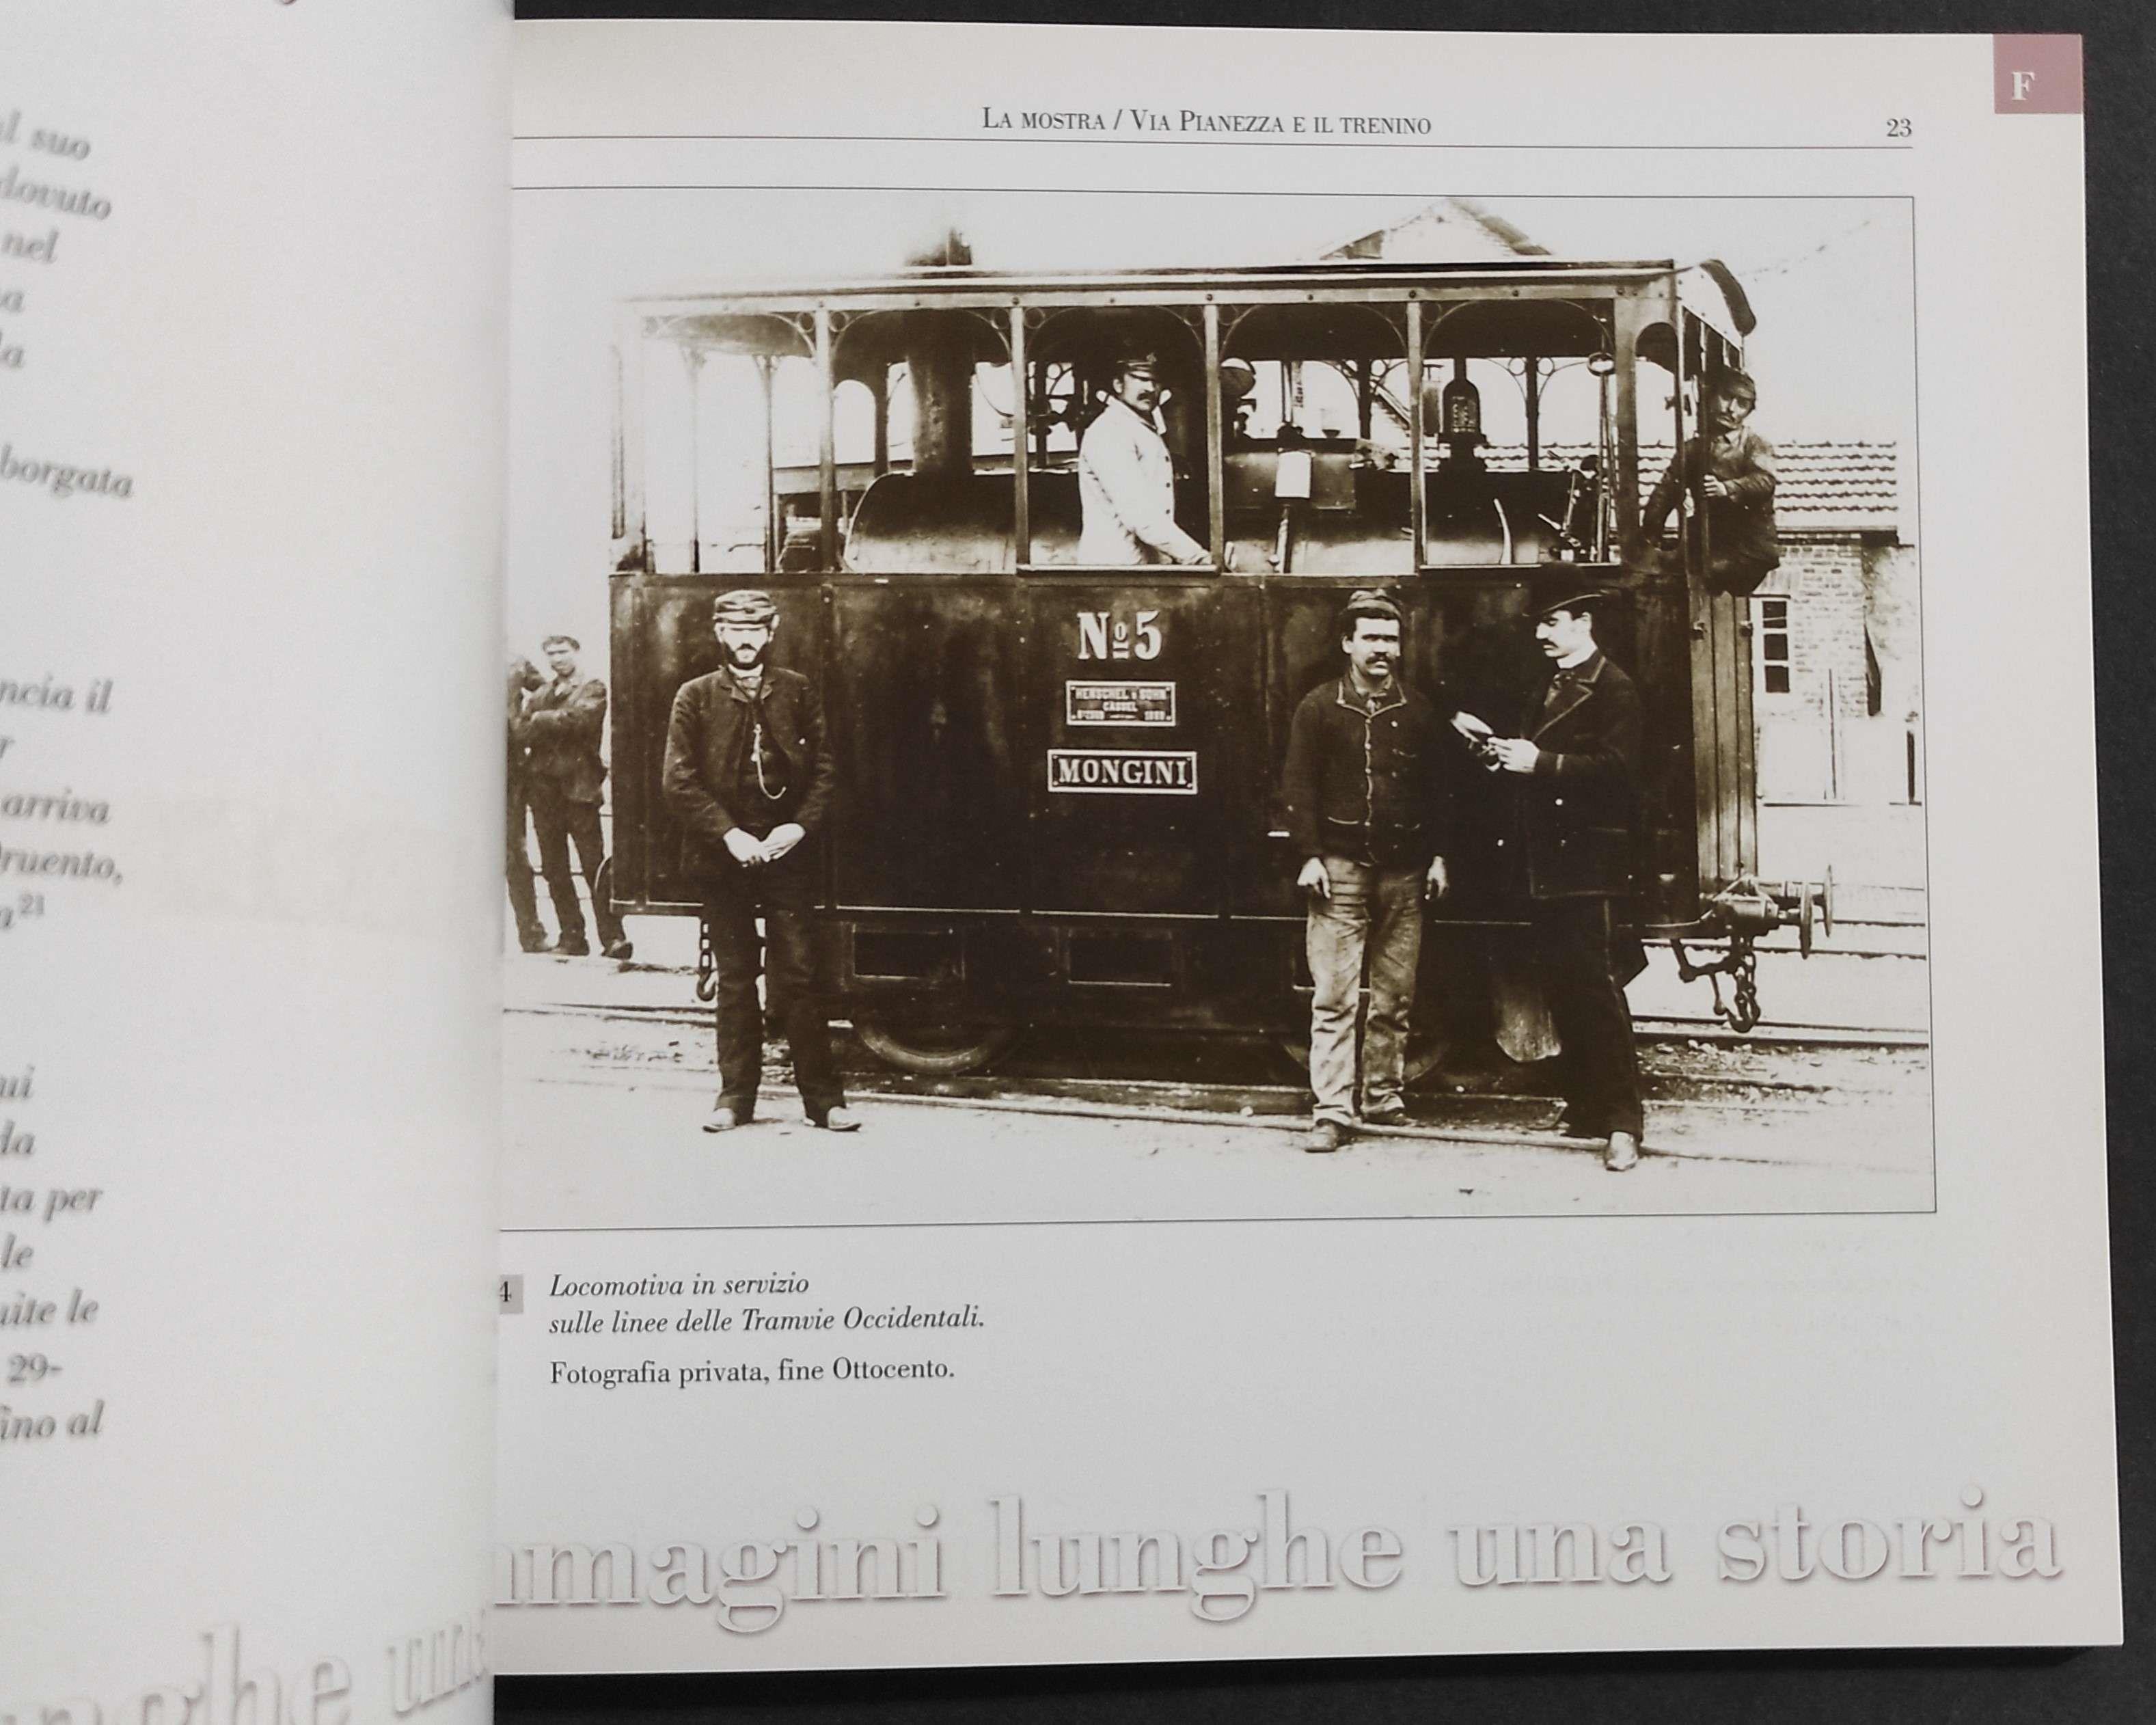 l suo
dovuto
nel
a
la
borgata
ncia il
r
arriva
ruento,
a²¹
ui
da
ta per
le
uite le
29-
fino al
nghe una
F
LA MOSTRA / VIA PIANEZZA E IL TRENINO
23
Nº5
HENSCHEL & SOHN
CASSEL
MONGINI
4
Locomotiva in servizio
sulle linee delle Tramvie Occidentali.
Fotografia privata, fine Ottocento.
mmagini lunghe una storia